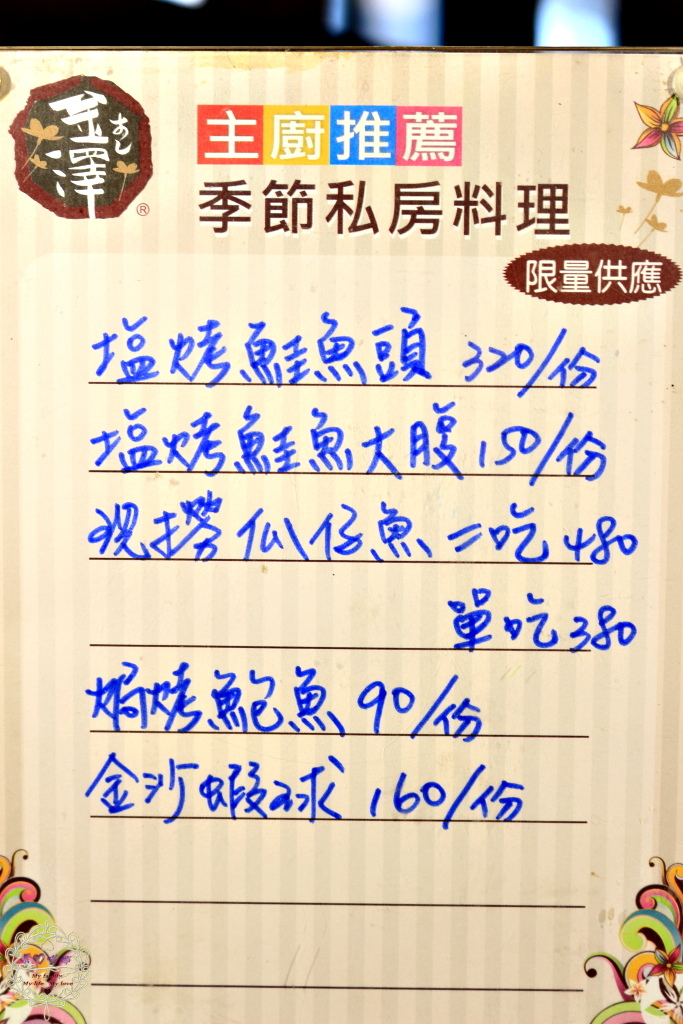 金澤
あし
®
主廚推薦
季節私房料理
限量供應
塩烤鮭魚頭 320/份
塩烤鮭魚大腹 150/份
現撈瓜仔魚 二吃 480
單吃 380
焗烤鮑魚 90/份
金沙蝦球 160/份